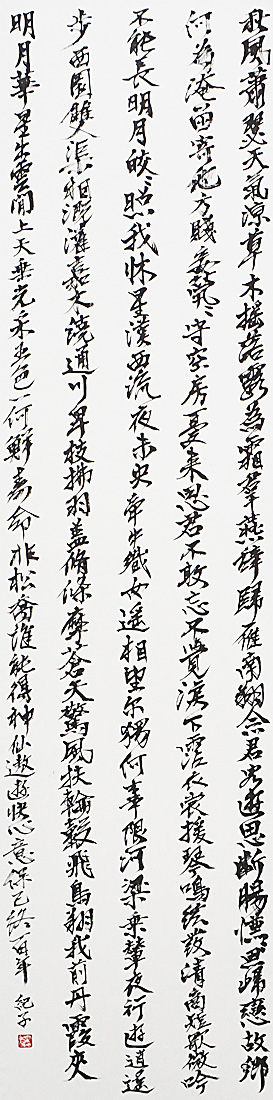 秋風蕭瑟天氣涼草木搖落露為霜羣燕辭歸雁南翔念君客遊思斷腸慊慊思歸戀故鄉
何為淹留寄他方賤妾煢々守空房憂來思君不敢忘不覺淚下霑衣裳援琴鳴絃發清商短歌微吟
不能長明月皎々照我牀星漢西流夜未央牽牛織女遙相望尔獨何辜限河梁乘輦夜行遊逍遙
步西園雙渠相溉灌嘉木繞通川卑枝拂羽蓋脩條摩蒼天驚風扶輪轂飛鳥翔我前丹霞夾
明月華星出雲間上天垂光采五色一何鮮壽命非松喬誰能得神仙遨遊快心意保己終百年